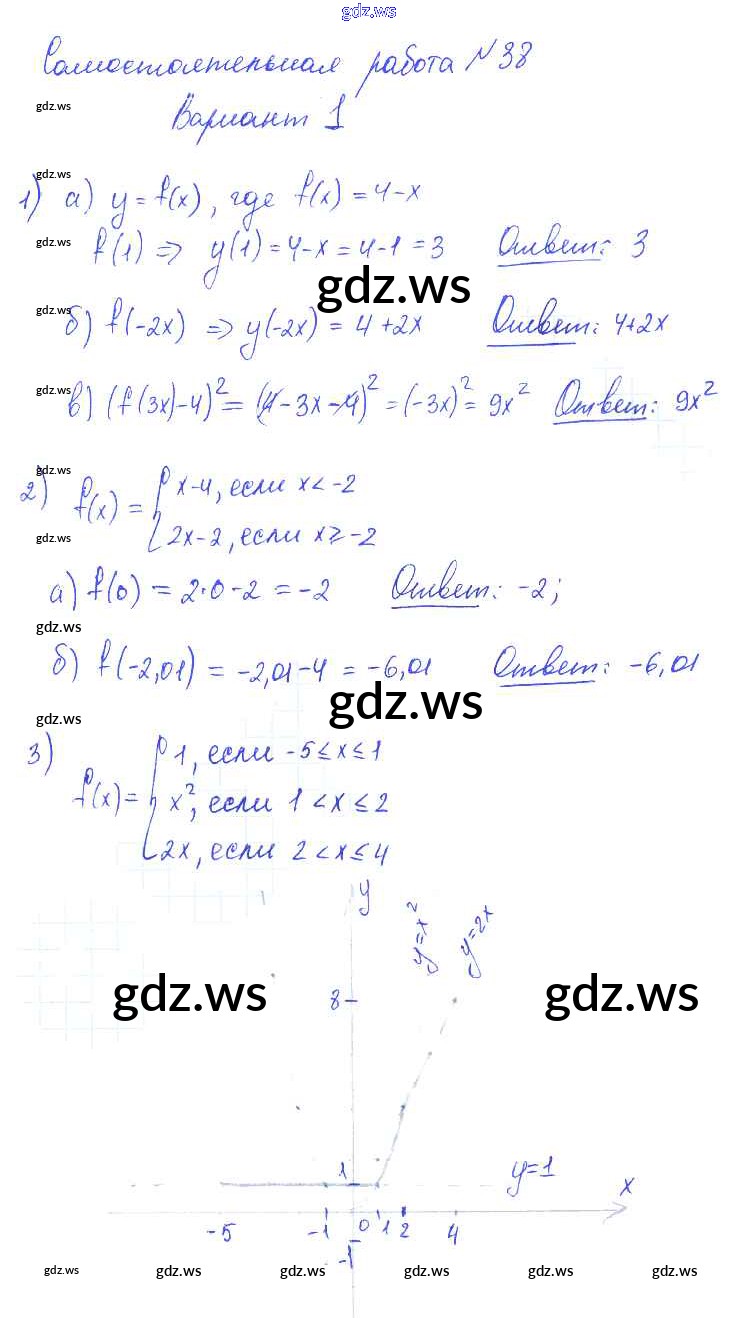 gdz.ws
Самостоятельная работа №38
gdz.ws
Вариант 1
gdz.ws
1) а) y = f(x), где f(x) = 4-x
gdz.ws
f(1) => y(1) = 4-x = 4-1 = 3 Ответ: 3
gdz.ws
gdz.ws
б) f(-2x) => y(-2x) = 4+2x Ответ: 4+2x
gdz.ws
в) (f(3x)-4)² = (4-3x-4)² = (-3x)² = 9x² Ответ: 9x²
gdz.ws
2) f(x) = { x-4, если x < -2
gdz.ws
2x-2, если x ≥ -2
а) f(0) = 2·0-2 = -2 Ответ: -2;
gdz.ws
б) f(-2,01) = -2,01-4 = -6,01 Ответ: -6,01
gdz.ws
gdz.ws
3) f(x) = { 1, если -5 ≤ x ≤ 1
x², если 1 < x ≤ 2
2x, если 2 < x ≤ 4
y
y=x² y=2x
gdz.ws 8 gdz.ws
1 y=1 x
-5 -1 0 1 2 4
-1
gdz.ws gdz.ws gdz.ws gdz.ws gdz.ws gdz.ws